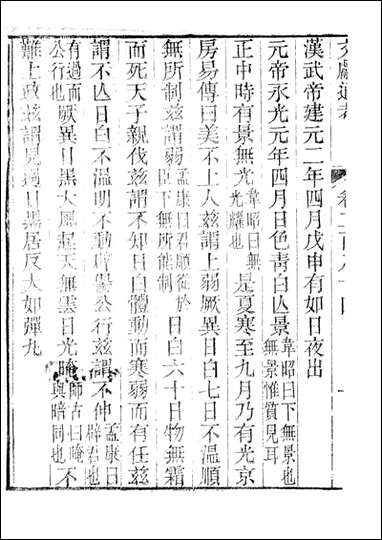 文獻通考 卷二百八十四 一
漢武帝建元二年四月戊申有如日夜出
元帝永光元年四月日色靑白亾景韋昭曰下無景也無景惟質見耳
正中時有景無光韋昭曰無光耀也是夏寒至九月乃有光京
房易傳曰美不上人兹謂上弱厥異日白七日不溫順
無所制兹謂弱孟康曰君順從於臣下無所能制日白六十日物無霜
而死天子親伐兹謂不知日白體動而寒弱而有任兹
謂不亾日白不溫明不動辟𠎝公行兹謂不伸孟康曰辟君也
有過而公行也厥異日黑大風起天無雲日光晻師古曰晻與暗同也不
難上政兹謂見過日黑居仄大如彈丸